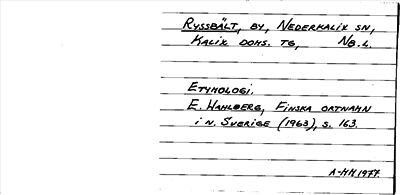 RYSSBÄLT, BY, NEDERKALIX SN,
KALIX DOMS. TG, NB.L.
ETYMOLOGI.
E. HAHLBERG, FINSKA ORTNAMN
I N. SVERIGE (1963), S. 163.
A-MH 1977.